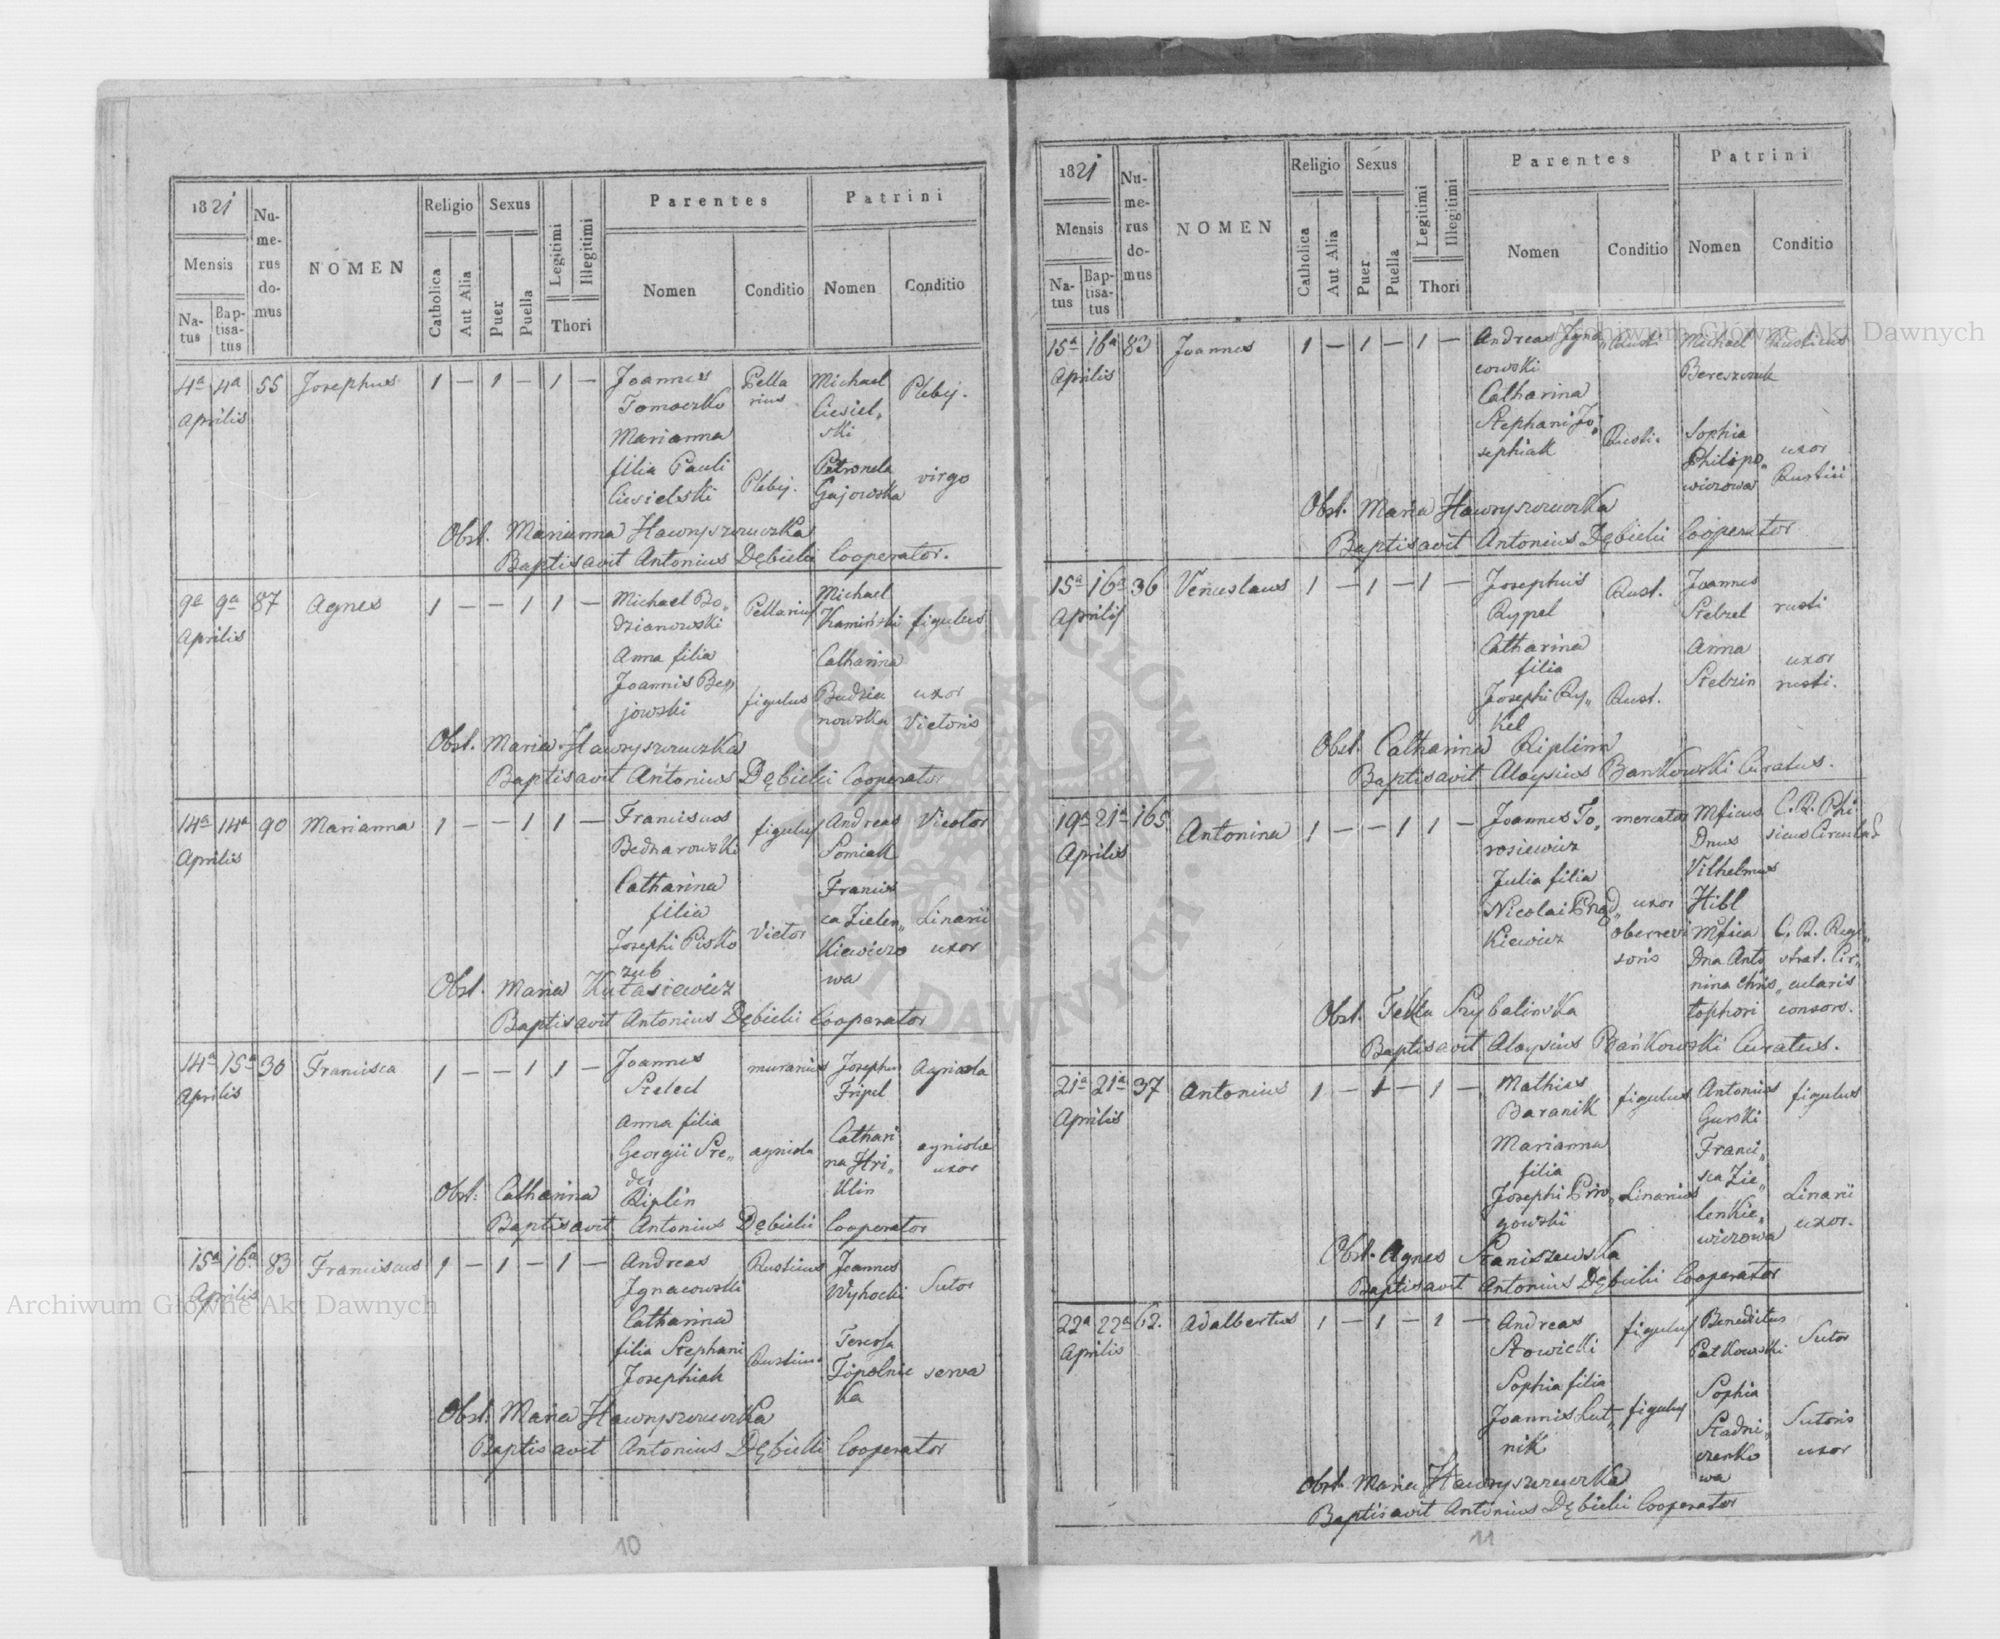 1821
Mensis
Na-
tus
Bap-
tisa-
tus
Nu-
me-
rus
do-
mus
NOMEN
Religio
Catholica
Aut Alia
Sexus
Puer
Puella
Legitimi
Illegitimi
Thori
Parentes
Nomen
Conditio
Patrini
Nomen
Conditio
4a 4a 55 Josephus 1 — 1 — 1 —
Aprilis
Joannes
Tomaszko
Marianna
filia Pauli
Ciesielski
Plebij.
Michael
Ciesiel„
ski
Petronela
Gajowska
Plebij.
virgo
Obst. Marianna Hawryszwuczka
Baptisavit Antonius Dębicki Cooperator.
9a 9a 87 Agnes 1 — — 1 1 —
Aprilis
Michael Bo„
dzianowski
Anna filia
Joannis Be„
jowski
figulus
Michael
Kamiński
Catharina
Budzia
nowska
figulus
uxor
Vietoris
Obst. Maria Hawryszwuczka
Baptisavit Antonius Dębicki Cooperator
14a 14a 90 Marianna 1 — — 1 1 —
Aprilis
Franciscus
Bednarowski
Catharina
filia
Josephi Pisko
zub
figulus
Vietor
Andreas
Somiak
Francis
ca Zielen„
kiewiczo
wa
Vietor
Linarii
uxor
Obst. Maria Kutasiewicz
Baptisavit Antonius Dębicki Cooperator
14a 15a 30 Francisca 1 — — 1 1 —
Aprilis
Joannes
Anna filia
Georgii Sre„
der
murarius
agricola
Josephus
Fripel
Cathari
na Hri„
klin
Agricola
agricolae
uxor
Obst. Catharina Riplin
Baptisavit Antonius Dębicki Cooperator
15a 16a 83 Franciscus 1 — 1 — 1 —
Aprilis
Andreas
Ignacowski
Catharina
filia Stephani
Josephiak
Rusticus
Rusticus
Joannes
Wyhocki
Teressa
Topolnic
ka
Sutor
serva
Obst. Maria Hawryszwuczka
Baptisavit Antonius Dębicki Cooperator
10
1821
Mensis
Na-
tus
Bap-
tisa-
tus
Nu-
me-
rus
do-
mus
NOMEN
Religio
Catholica
Aut Alia
Sexus
Puer
Puella
Legitimi
Illegitimi
Thori
Parentes
Nomen
Conditio
Patrini
Nomen
Conditio
15a 16a 83 Joannes 1 — 1 — 1 —
Aprilis
Andreas Igna„
cowski
Catharina
Stephani Jo„
sephiak
Rusti
Rusti.
Michael
Bereszczuk
Sophia
Philipo„
wiczowa
Rusticus
uxor
Rustici
Obst. Maria Hawryszwuczka
Baptisavit Antonius Dębicki Cooperator
15a 16a 36 Venceslaus 1 — 1 — 1 —
Aprilis
Josephus
Rypel
Catharina
filia
Josephi Ry„
kel
Rust.
Rust.
Joannes
Stebzel
Anna
Stebzin
rusti
uxor
rusti.
Obst. Catharina Riplinn
Baptisavit Aloysius Bańkowski Curatus.
19a 21a 165 Antonina 1 — — 1 1 —
Aprilis
Joannes To„
rosiewicz
Julia filia
Nicolai
kiewicz
mercator
uxor
Mficus
Dnus
Vilhelmus
Hibl
Mfica
Dna Anto
nina Chris„
tophori
C. R. Phi
sicus Circulad
C. R. Regi„
strat. Cir„
cularis
consors.
Obst. Tekla Szybalinska
Baptisavit Aloysius Bańkowski Curatus.
21a 21a 37 Antonius 1 — 1 — 1 —
Aprilis
Mathias
Baranik
Marianna
filia
Josephi Piro„
gowski
figulus
Linarius
Antonius
Gurski
Franci„
sca Zie„
lenkie„
wiczowa
figulus
Linarii
uxor.
Obst. Agnes Staniszewska
Baptisavit Antonius Dębicki Cooperator
22a 22a 62. Adalbertus 1 — 1 — 1 —
Aprilis
Andreas
Słowicki
Sophia filia
Joannis Lut„
nik
figulus
figulus
Benedictus
Patkowski
Sophia
Stadni„
czenko
wa
Sutor
Sutoris
uxor
Obst. Maria Hawryszwuczka
Baptisavit Antonius Dębicki Cooperator
11
Archiwum Główne Akt Dawnych
Archiwum Główne Akt Dawnych
ARCHIWUM GŁÓWNE AKT DAWNYCH